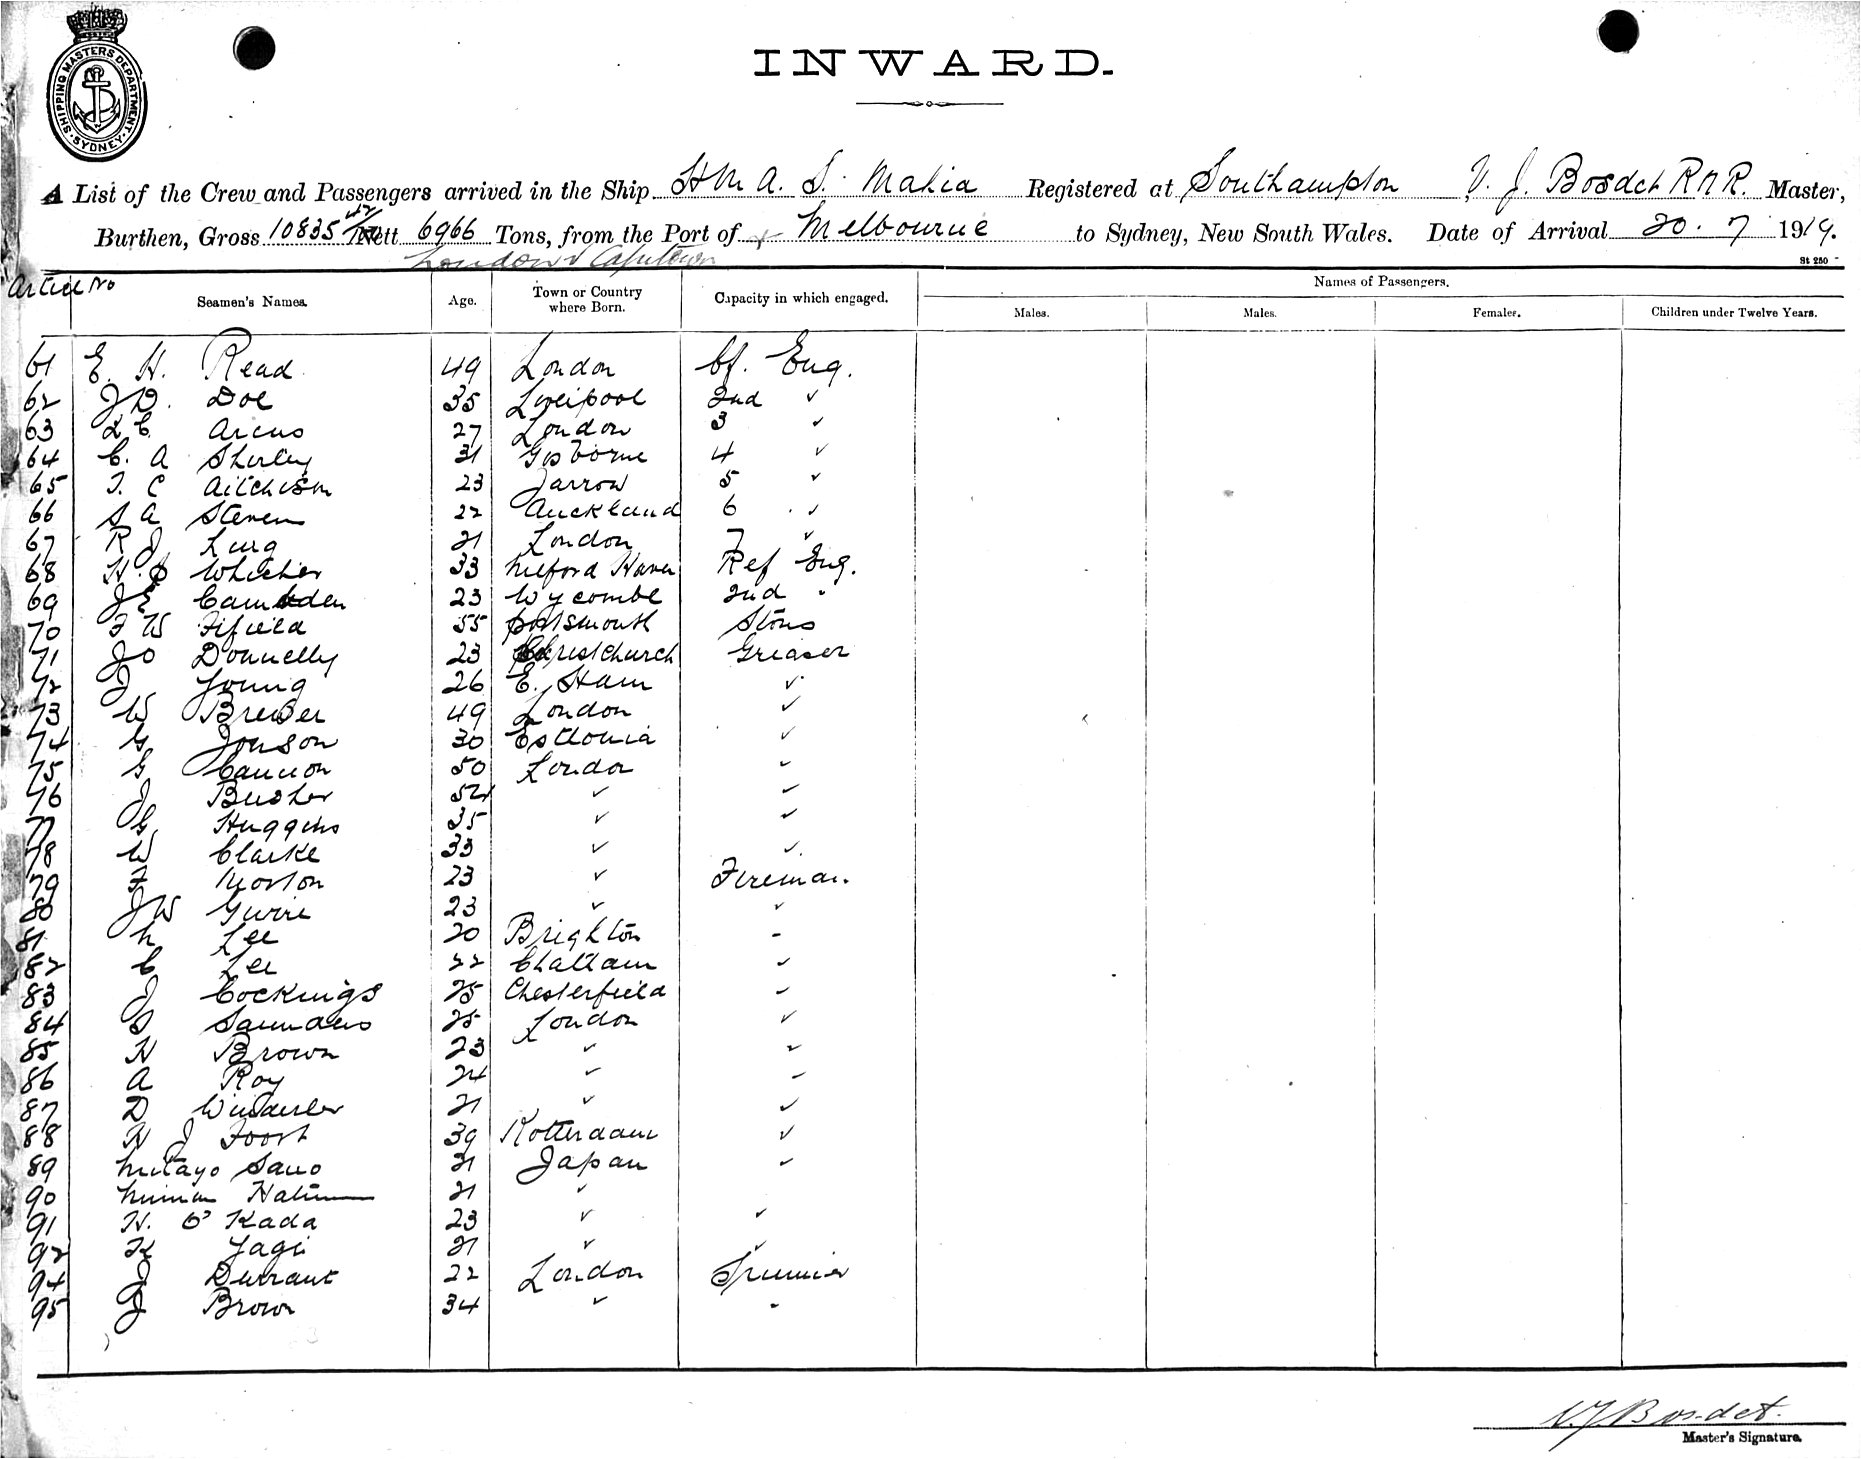 SHIPPING MASTERS DEPARTMENT. SYDNEY.
INWARD.
A List of the Crew and Passengers arrived in the Ship HMA. S. Mahia Registered at Southampton V. J. Bosdet RNR. Master,
Burthen, Gross 10835 Nett 6966 Tons, from the Port of Melbourne to Sydney, New South Wales. Date of Arrival 20. 7 1919.
London & Capetown
St 250
Article No Seamen's Names. Age. Town or Country where Born. Capacity in which engaged. Names of Passengers.
Males. Males. Females. Children under Twelve Years.
61 E. H. Read 49 London Cf. Eng.
62 J D. Doe 35 Liverpool 2nd ✓
63 L C. Arcus 27 London 3 ✓
64 C. A Shirley 31 Gosborne 4 ✓
65 T. C Aitchison 23 Jarrow 5 ✓
66 S A Steven 22 Auckland 6 ✓
67 R J 21 London 7 ✓
68 H. Whicher 33 Milford Haven Ref Eng.
69 J E Camden 23 Wycombe 2nd "
70 F W Fifield 55 Portsmouth Strs
71 J O Donnelly 23 Christchurch Greaser
72 J Young 26 E. Ham ✓
73 W Brewer 49 London ✓
74 G Jonson 30 Esthonia ✓
75 G Cannon 50 London ✓
76 J Busher ✓ ✓
77 G Huggins 35 ✓ ✓
78 W Clarke 33 ✓ ✓
79 F Morton 23 ✓ Fireman.
80 J W Gwire 23 ✓ ✓
81 Lee 20 Brighton -
82 C Lee 22 Chatham ✓
83 J Cockings 25 Chesterfield ✓
84 S Saunders 25 London ✓
85 H Brown 23 ✓ ✓
86 A Roy 24 ✓ ✓
87 D 21 ✓ ✓
88 H J Foort 39 Rotterdam ✓
89 Mitayo Sano 21 Japan ✓
90 21 ✓
91 H. O' Kada 23 ✓ ✓
92 K Yagi 21 ✓ ✓
94 J Durrant 22 London Trimmer
95 J Brown 34 ✓ -
V. J. Bosdet.
Master's Signature.